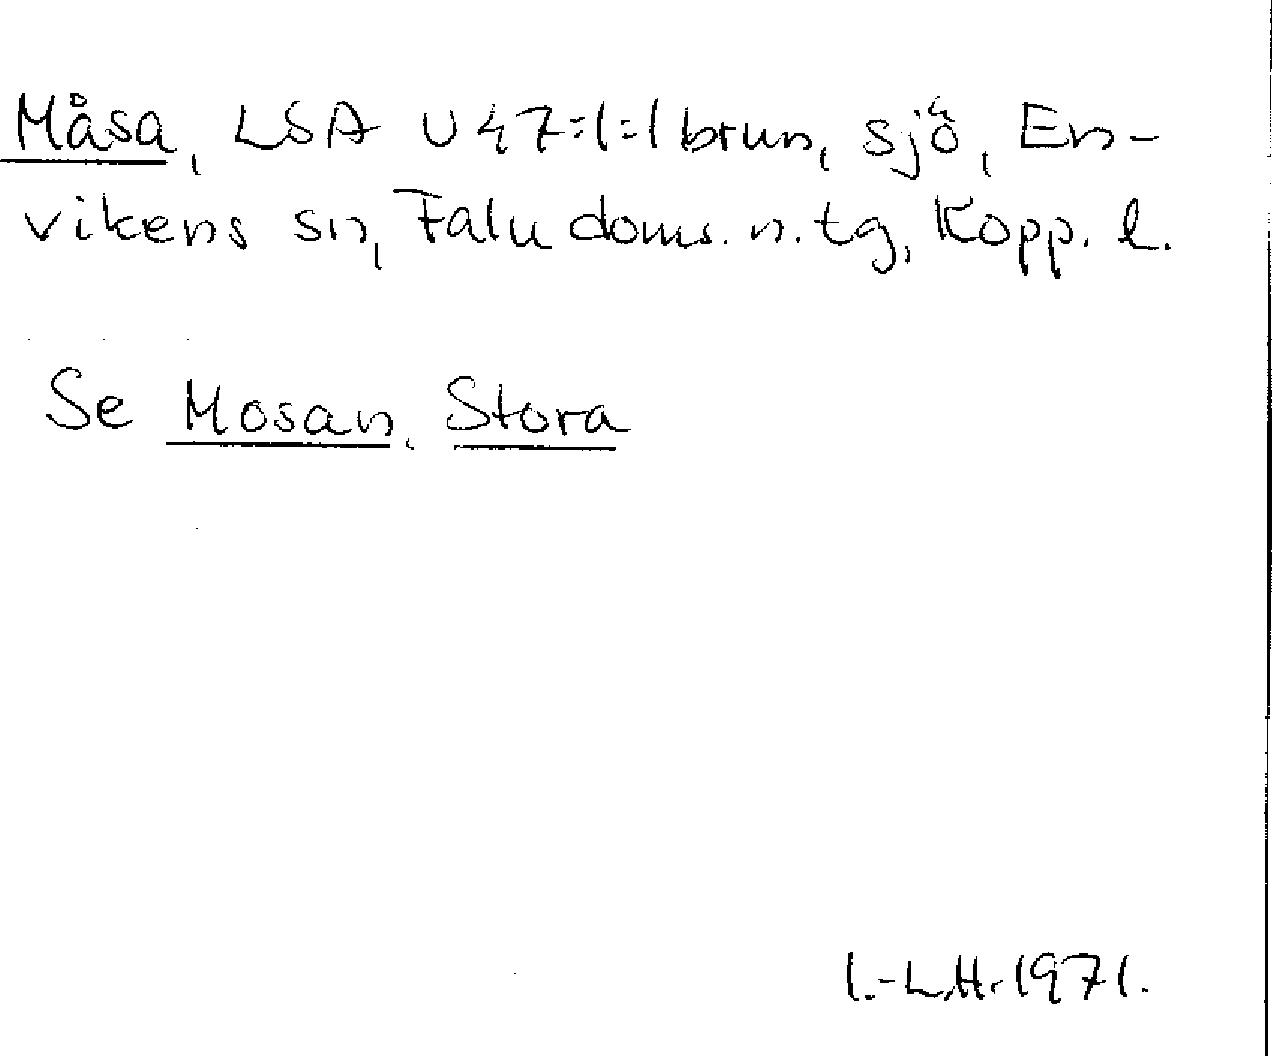 Måsa, LSA U47=1=1 brun, sjö, En-
vikens sn, Falu doms. n. tg, Kopp. l.
Se Mosan, Stora
I.-L.H. 1971.